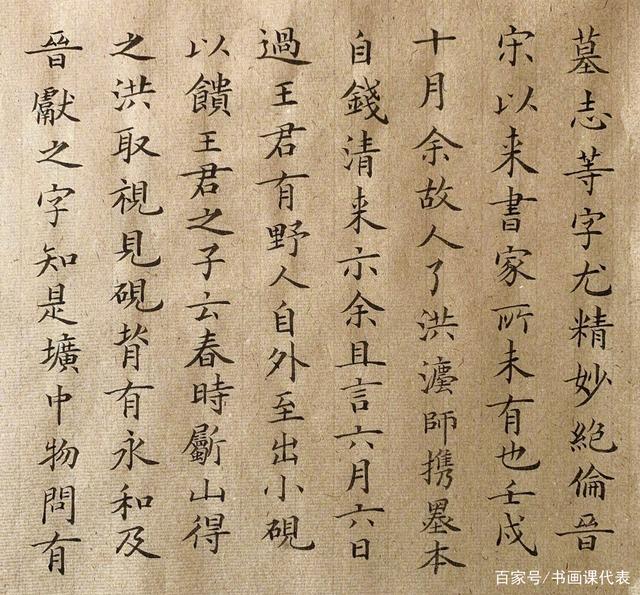 墓志等字尤精妙絕倫晉
宋以来書家所未有也壬戌
十月余故人了洪灋師攜墨本
自錢清来示余且言六月六日
過王君有野人自外至出小硯
以饋王君之子云春時斸山得
之洪取視見硯背有永和及
晉獻之字知是壙中物問有
百家号/书画课代表